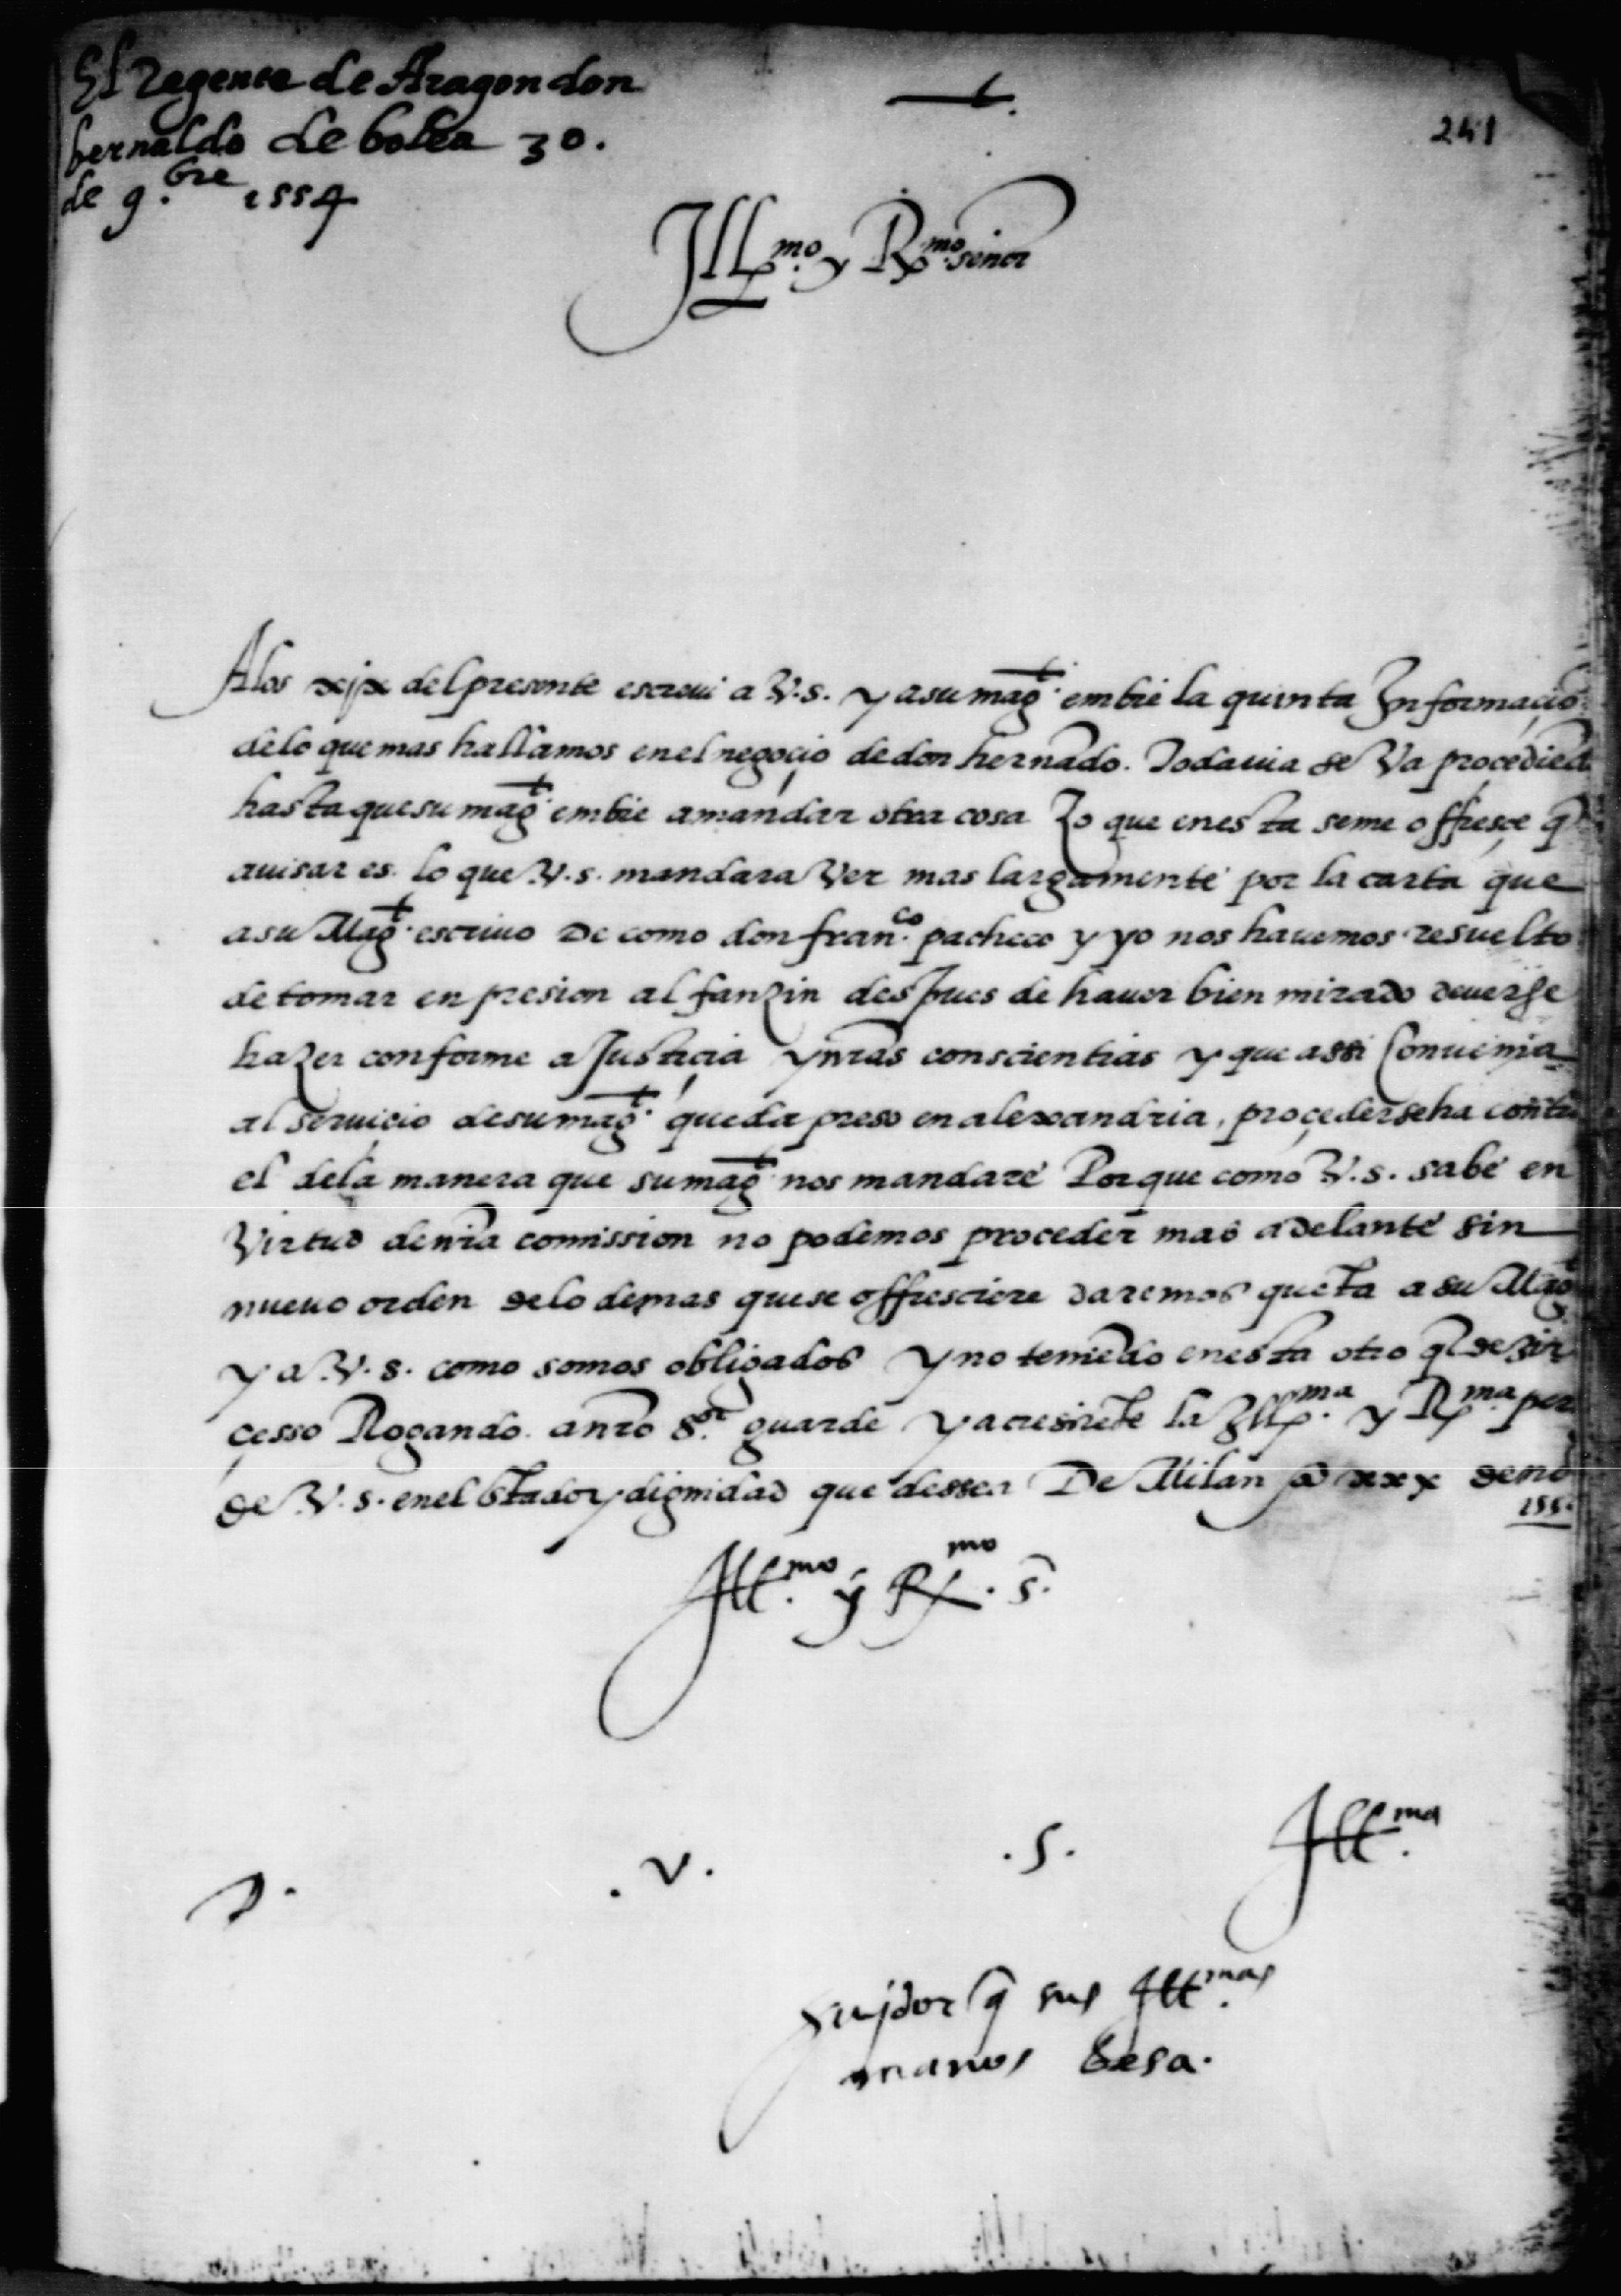 El Regente de Aragon don
bernaldo de bolea 30.
de 9.bre 1554
241
Illmo. y Rmo. señor
A los xix del presente escreui a V.s. y a su magt. embie la quinta Informaçio
de lo que mas hallamos en el negoçio de don hernãdo. Todauia se va procediẽd
hasta que su magt. embie a mandar otra cosa Lo que en esta se me offresçe q̃
auisar es lo que V.s. mandara ver mas largamente por la carta que
a su Magt. escriuo De como don franco. pacheco y yo nos hauemos resuelto
de tomar en presion al fanzin despues de hauer bien mirado deuerse
hazer conforme a Justiçia y nr̃as conscientias y que assi Conuenia
al seruicio de su magt. queda preso en alexandria, proçederse ha contra
el de la manera que su magt. nos mandare Porque como V.s. sabe en
Virtud de nr̃a comission no podemos proceder mas adelante sin
nueuo orden de lo demas que se offresciere daremos quẽta a su Magt
y a V.s. como somos obligados y no teniẽdo en esta otro q̃ dezir
çesso Rogando a nr̃o Sor. guarde y acresciẽte la Illma. y Rma. per
de V.s. en el estado y dignidad que dessea De Milan a xxx de no
155
Illmo. y Rmo. S.
D. V. S. Illma.
seruidor q̃ sus Illmas.
manos besa.